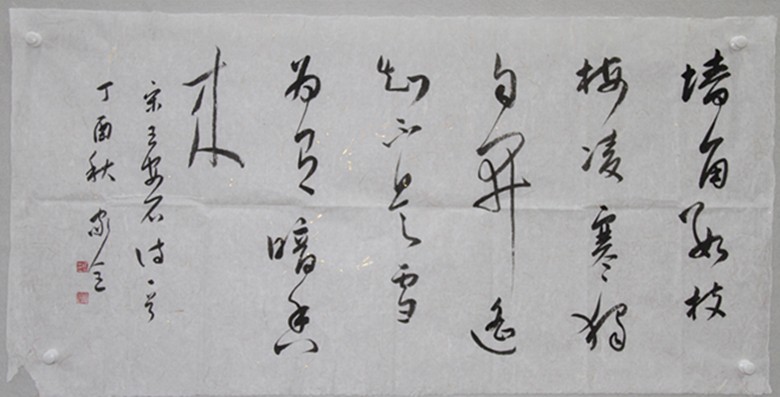 墙角数枝
梅凌寒独
自开遥
知不是雪
为有暗香
来
宋王安石诗一首
丁酉秋